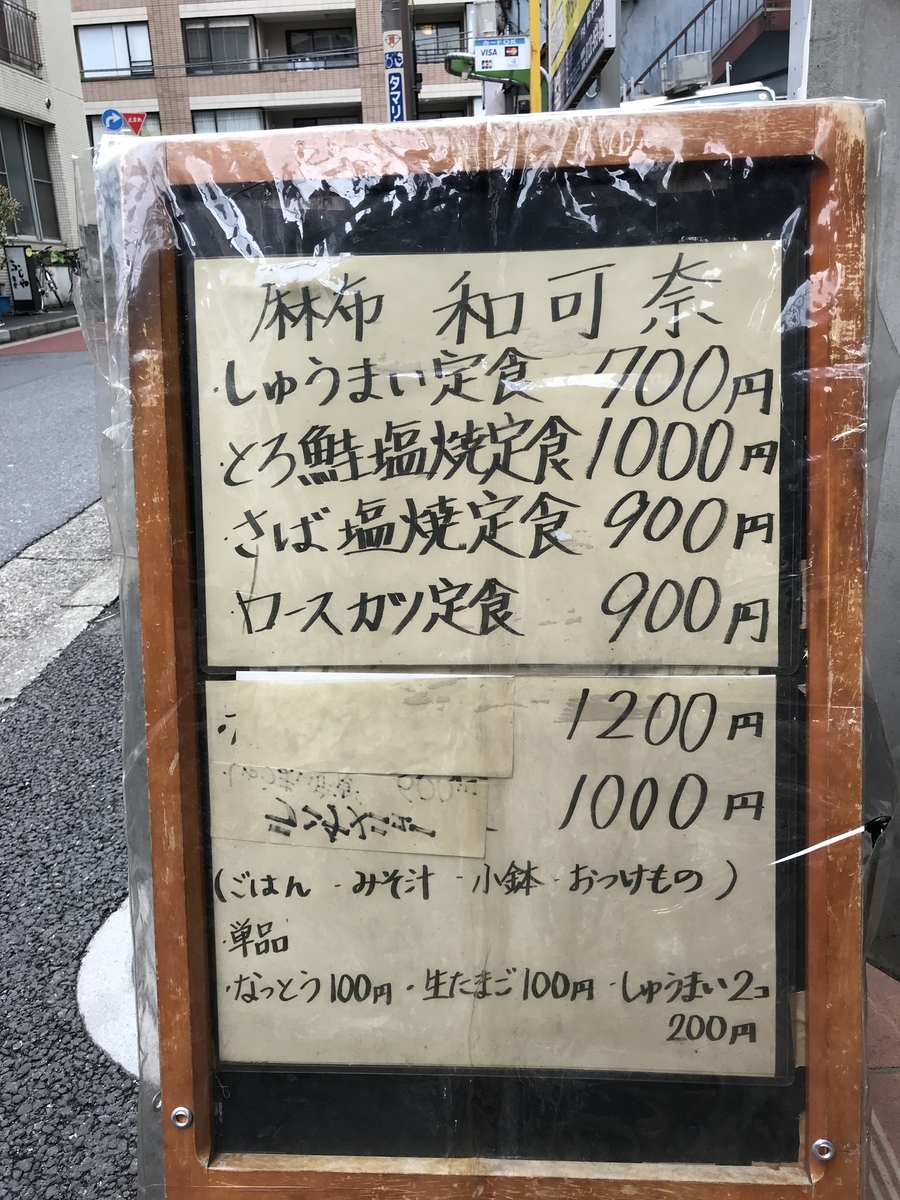 カードOK
VISA
JCB
タマリ
止まれ
麻布 和可奈
・しゅうまい定食 700円
・とろ鮭塩焼定食 1000円
・さば塩焼定食 900円
・ロースカツ定食 900円
1200円
1000円
(ごはん ・みそ汁 ・小鉢 ・おつけもの)
・単品
・なっとう100円 ・生たまご100円 ・しゅうまい2コ
200円